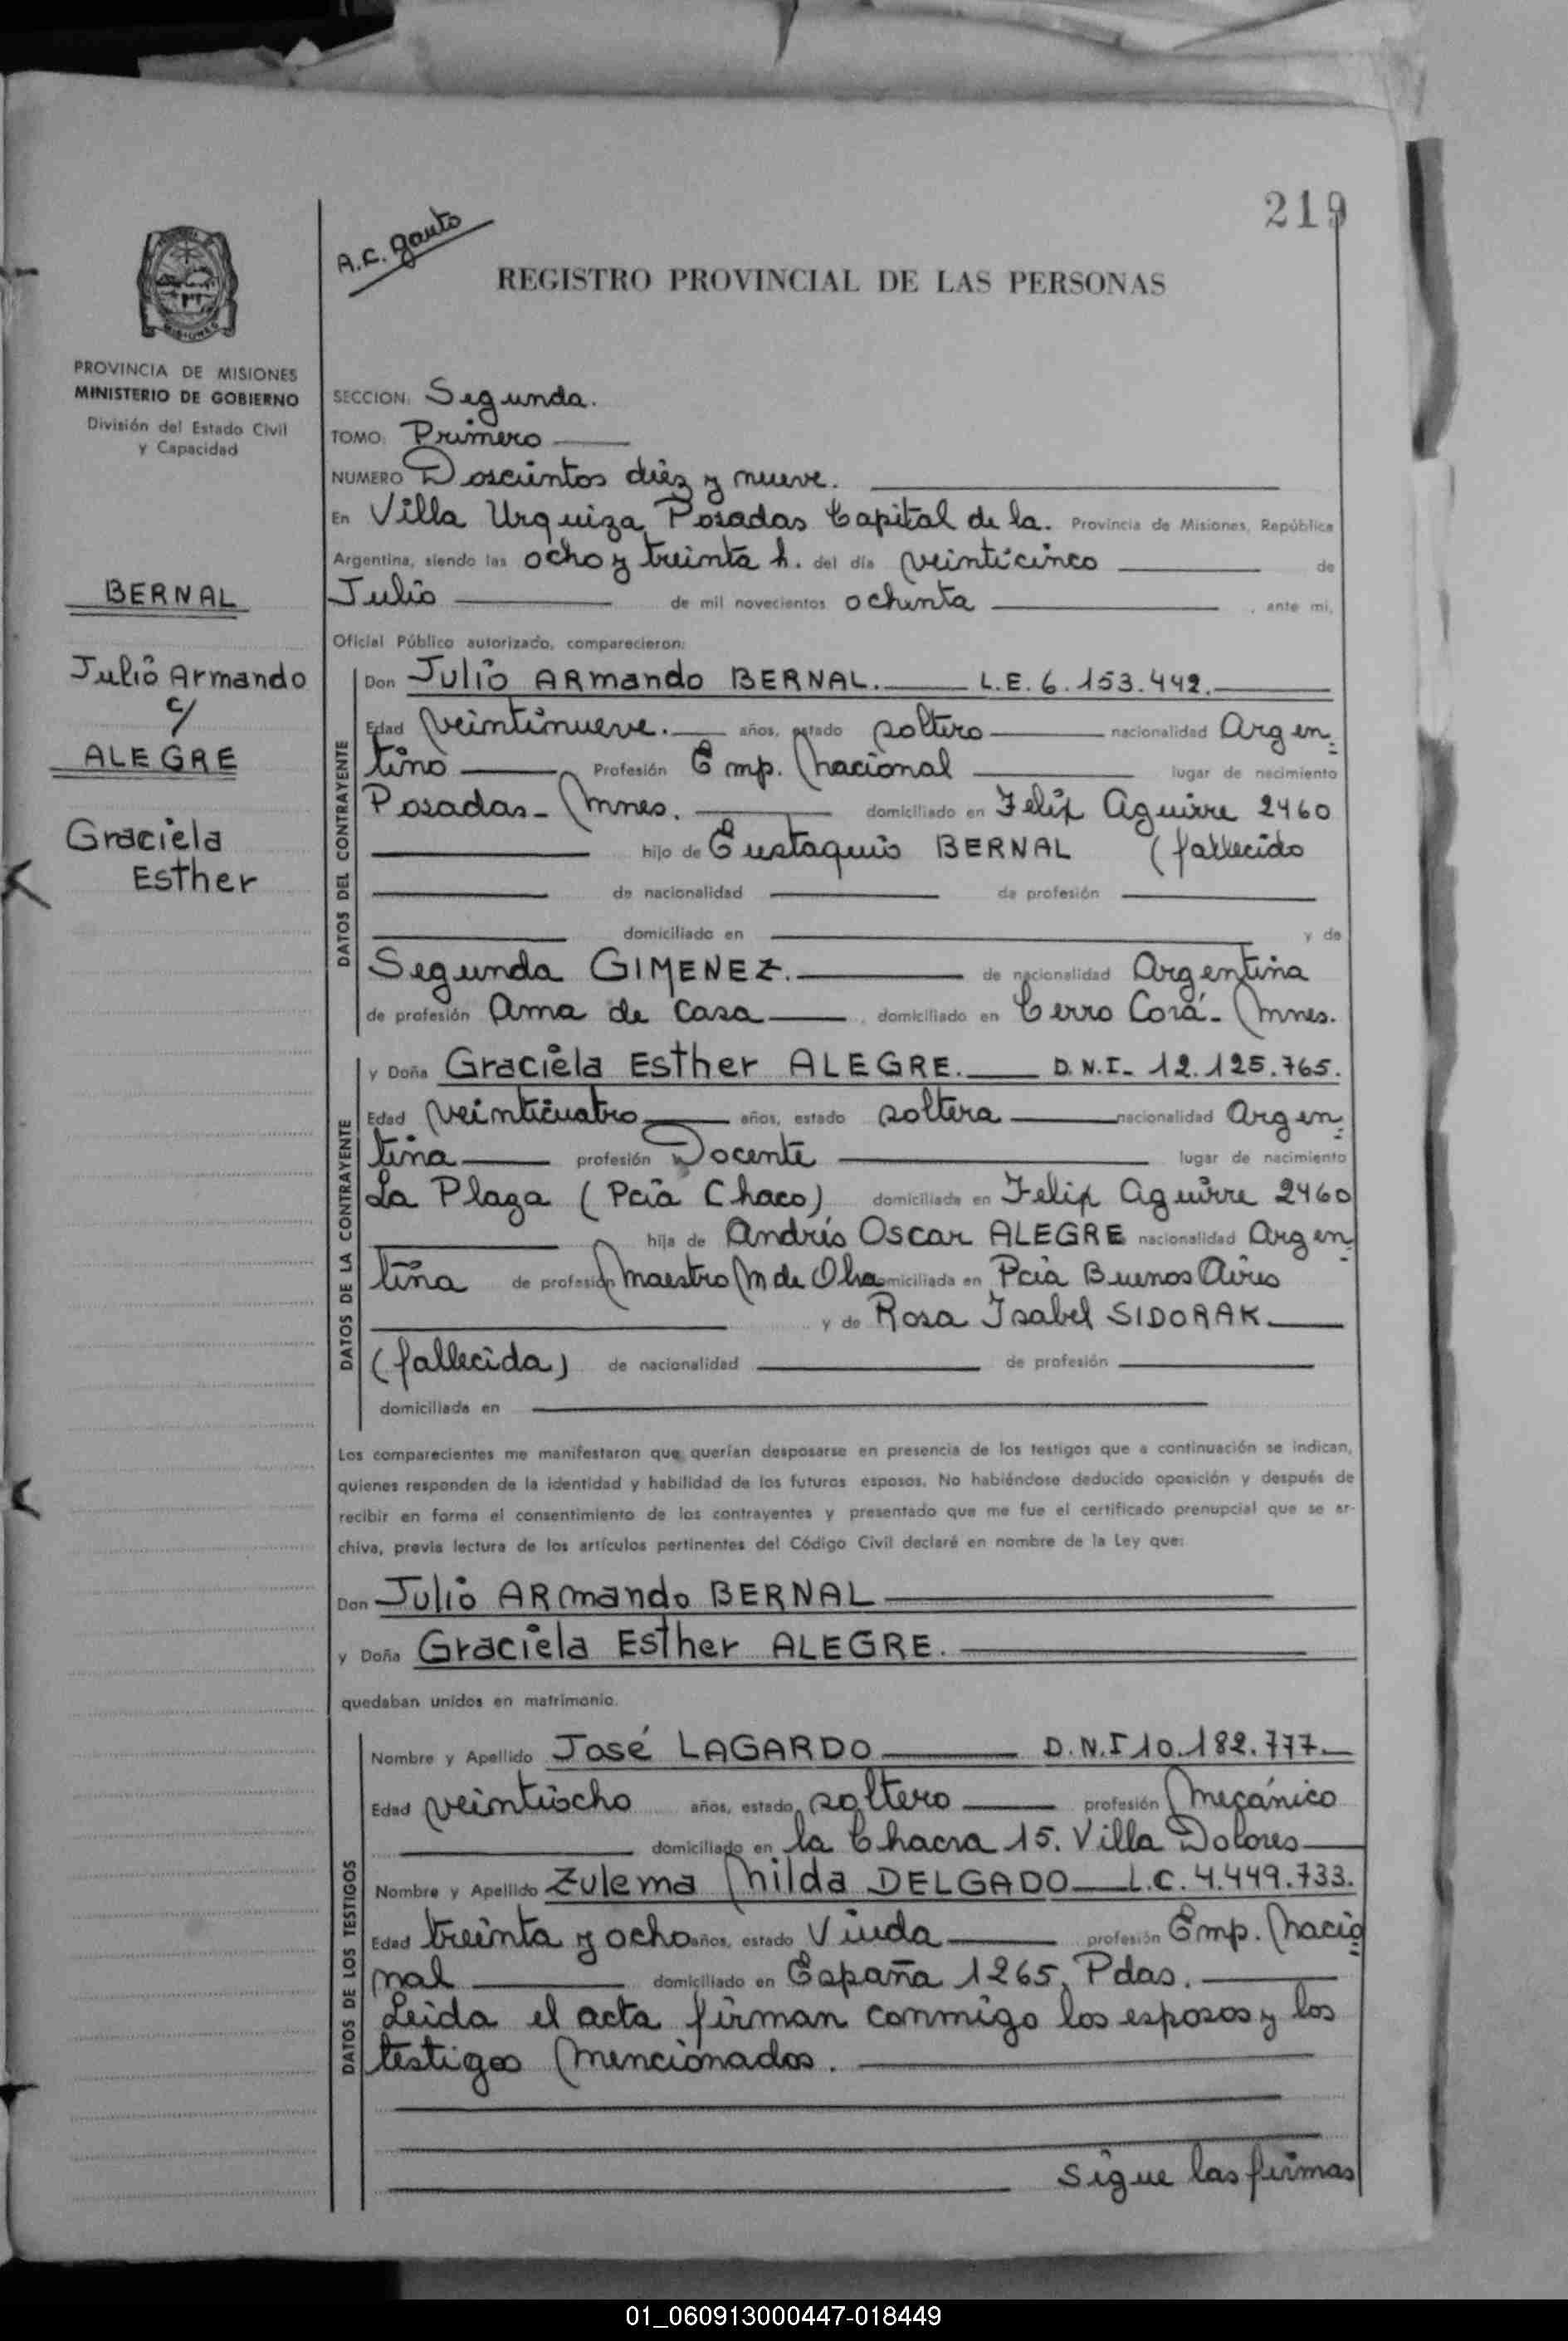 219
A.C. Gauto
REGISTRO PROVINCIAL DE LAS PERSONAS
MISIONES
PROVINCIA DE MISIONES
MINISTERIO DE GOBIERNO
División del Estado Civil
y Capacidad
BERNAL
Julio Armando
c/
ALEGRE
Graciela
Esther
SECCION: Segunda.
TOMO: Primero
NUMERO Doscientos diez y nueve.
En Villa Urquiza, Posadas Capital de la. Provincia de Misiones, República
Argentina, siendo las ocho y treinta h. del día veinticinco de
Julio de mil novecientos ochenta, ante mi,
Oficial Público autorizado, comparecieron:
DATOS DEL CONTRAYENTE
Don Julio ARmando BERNAL. L.E. 6.153.442.
Edad veintinueve. años, estado soltero nacionalidad Argen=
tino Profesión Emp. Nacional lugar de nacimiento
Posadas- Mnes. domiciliado en Felix Aguirre 2460
hijo de Eustaquio BERNAL (fallecido
de nacionalidad de profesión
domiciliado en y de
Segunda GIMENEZ. de nacionalidad Argentina
de profesión Ama de Casa, domiciliado en Cerro Corá- Mnes.
DATOS DE LA CONTRAYENTE
y Doña Graciela Esther ALEGRE. D.N.I- 12.125.765.
Edad veinticuatro años, estado soltera nacionalidad Argen=
tina profesión Docente lugar de nacimiento
La Plaza (Pcia Chaco) domiciliada en Felix Aguirre 2460
hija de Andrés Oscar ALEGRE nacionalidad Argen=
tina de profesión Maestro M de Oha domiciliada en Pcia Buenos Aires
y de Rosa Isabel SIDORAK
(fallecida) de nacionalidad de profesión
domiciliada en
Los comparecientes me manifestaron que querían desposarse en presencia de los testigos que a continuación se indican,
quienes responden de la identidad y habilidad de los futuros esposos. No habiéndose deducido oposición y después de
recibir en forma el consentimiento de los contrayentes y presentado que me fue el certificado prenupcial que se ar-
chiva, previa lectura de los artículos pertinentes del Código Civil declaré en nombre de la Ley que:
Don Julio ARmando BERNAL
y Doña Graciela Esther ALEGRE.
quedaban unidos en matrimonio.
DATOS DE LOS TESTIGOS
Nombre y Apellido José LAGARDO D.N.I 10.182.777.
Edad veintiocho años, estado soltero profesión Mecánico
domiciliado en la Chacra 15. Villa Dolores
Nombre y Apellido Zulema Nilda DELGADO L.C. 4.449.733.
Edad treinta y ocho años, estado Viuda profesión Emp. Nacio
nal domiciliado en España 1265, Pdas.
Leida el acta firman conmigo los esposos y los
testigos mencionados.
Sigue las firmas
01_060913000447-018449